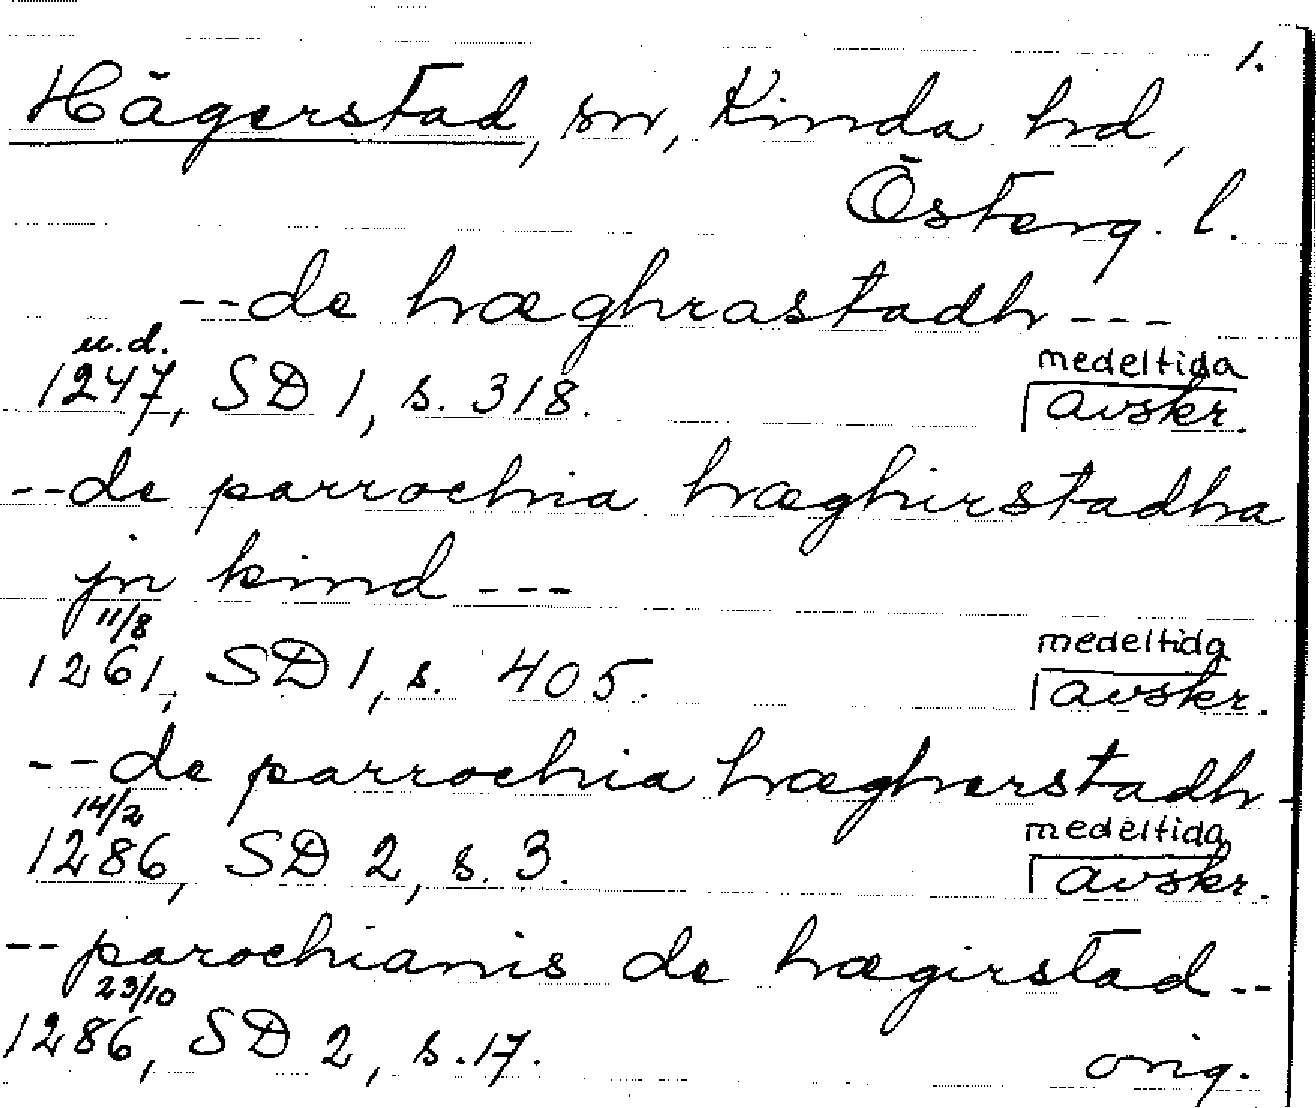 1.
Hägerstad, sn, Kinda hd,
Österg. l.
--de hæghrastadh---
u.d.
1247, SD 1, s. 318. medeltida avskr.
--de parrochia hæghirstadha
jn kind---
11/8
1261, SD 1, s. 405. medeltida avskr.
--de parrochia hægherstadh-
14/2
1286, SD 2, s. 3. medeltida avskr.
--parochianis de hægirstad--
23/10
1286, SD 2, s. 17. orig.